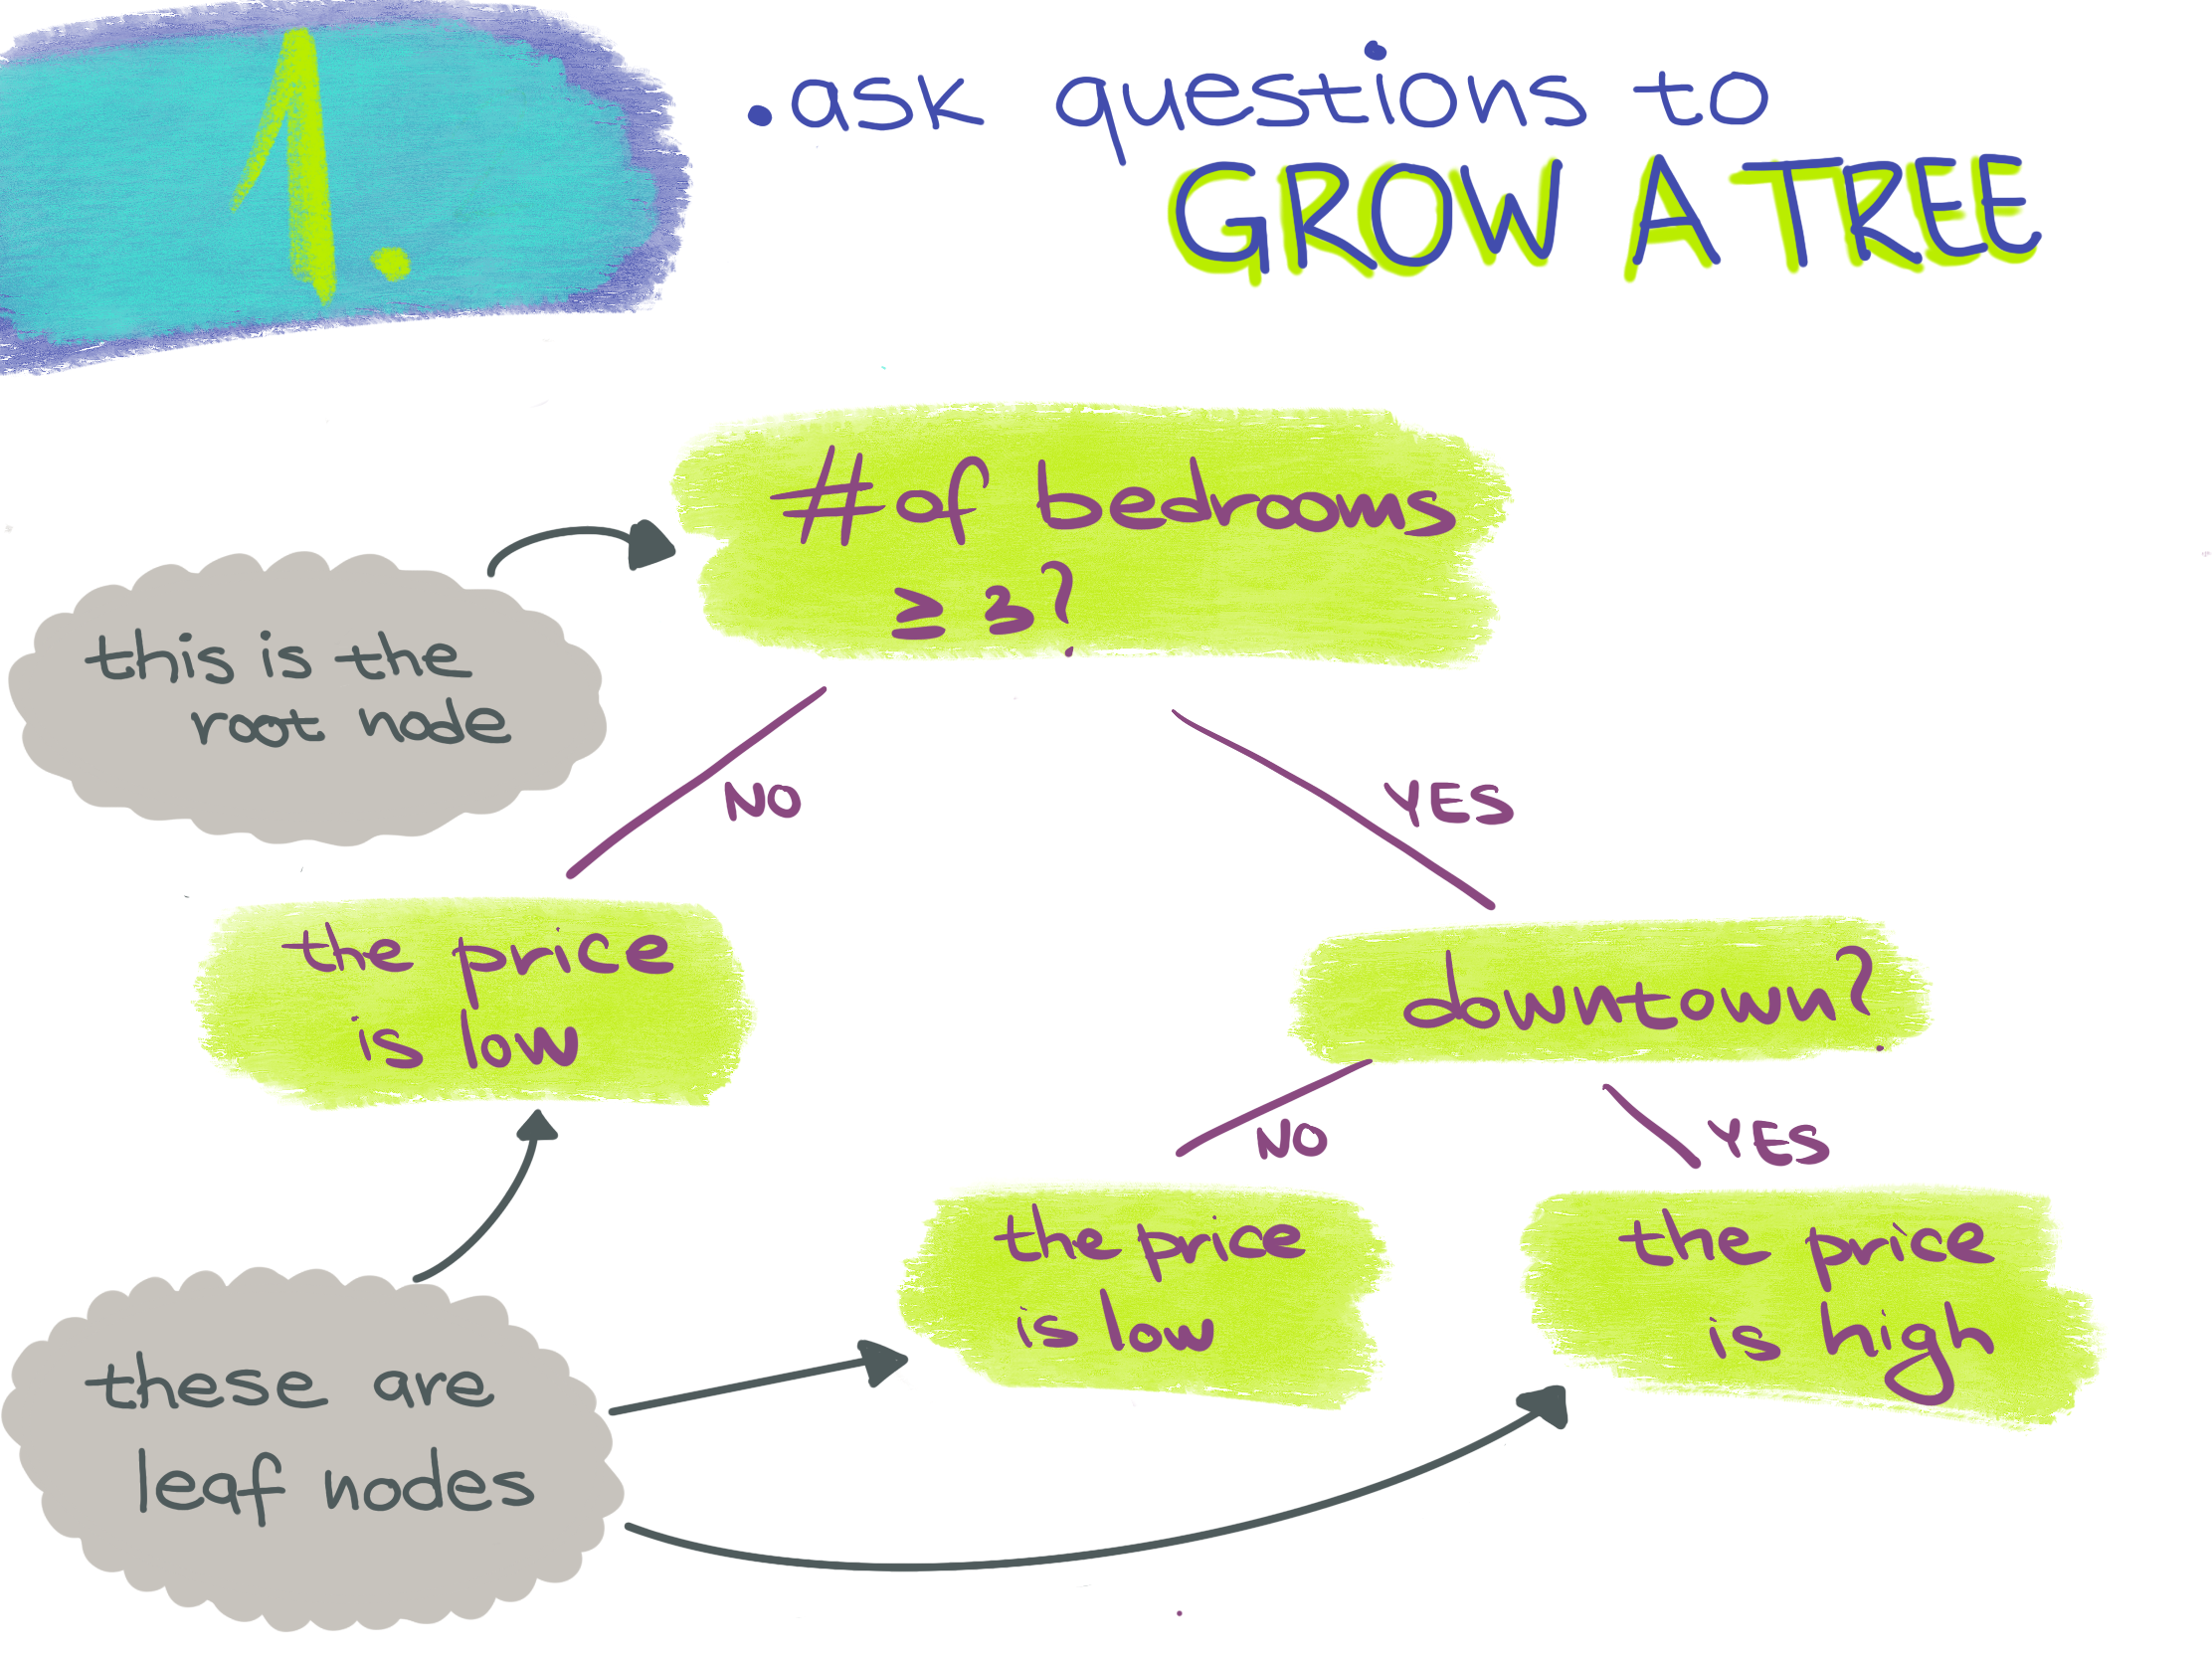 1.
.ask questions to
GROW A TREE
#of bedrooms
≥ 3?
this is the
root node
NO
YES
the price
is low
downtown?
NO
YES
the price
is low
the price
is high
these are
leaf nodes